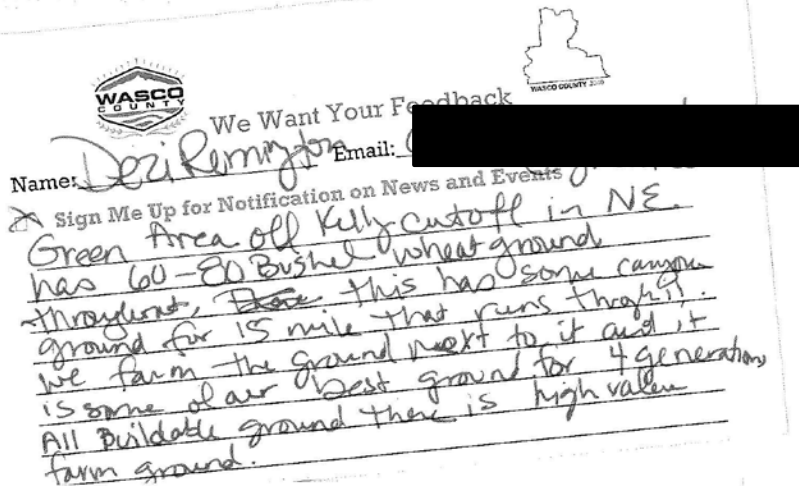 WASCO
COUNTY
WASCO COUNTY
We Want Your Feedback
Name: Dezi Remington Email:
Sign Me Up for Notification on News and Events
Green Area off Kelly Cutoff in NE
has 60-80 Bushel wheat ground
throughout, this has some canyon
ground for 15 mile that runs thoghit.
we farm the ground next to it and it
is some of our best ground for 4 generations
All Buildable ground there is high valeu
farm ground.